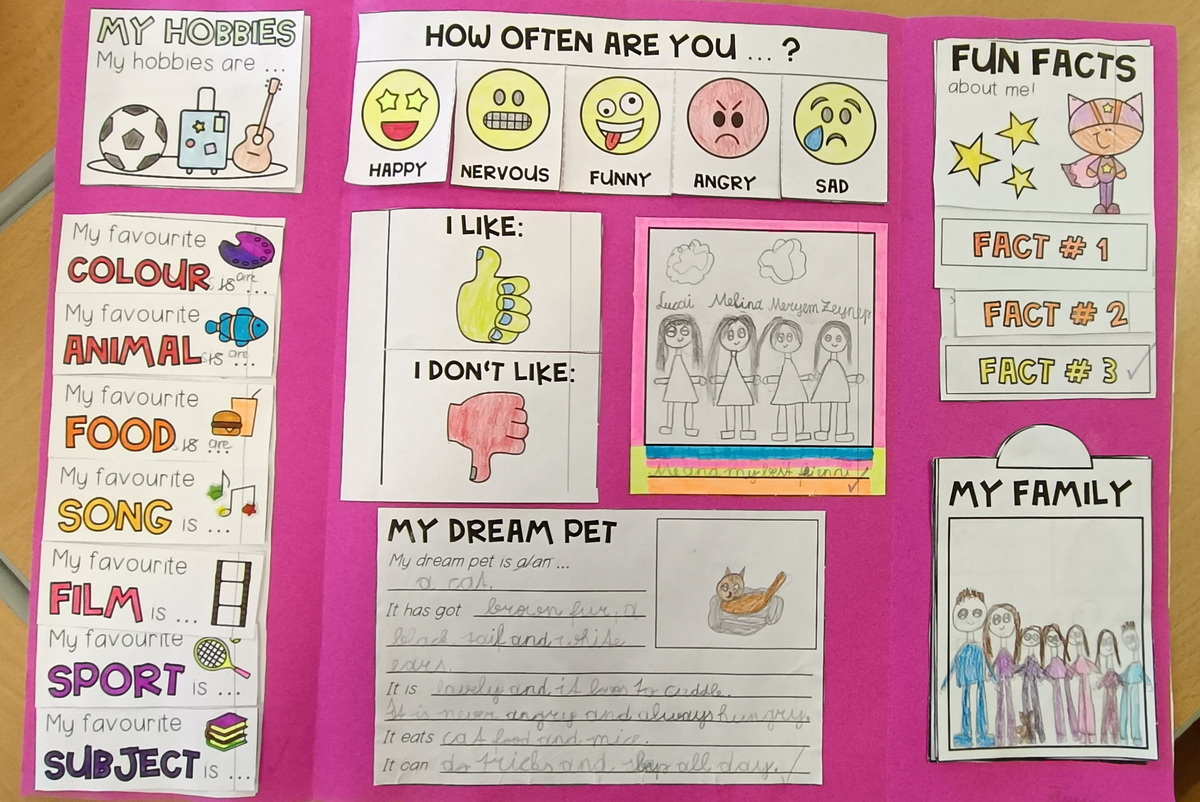 MY HOBBIES
My hobbies are ...
My favourite
COLOUR is are ...
My favourite
ANIMAL is are ...
My favourite
FOOD is are ...
My favourite
SONG is ...
My favourite
FILM is ...
My favourite
SPORT is ...
My favourite
SUBJECT is ...
HOW OFTEN ARE YOU ... ?
HAPPY
NERVOUS
FUNNY
ANGRY
SAD
I LIKE:
I DON'T LIKE:
Melina Meryem Zeynep
my best
MY DREAM PET
My dream pet is a/an ...
a cat.
It has got brown fur, a
black tail and white
ears.
It is lovely and it loves to cuddle.
It is never angry and always hungry.
It eats cat food and mice.
It can do tricks and sleep all day.
FUN FACTS
about me!
FACT # 1
FACT # 2
FACT # 3
MY FAMILY